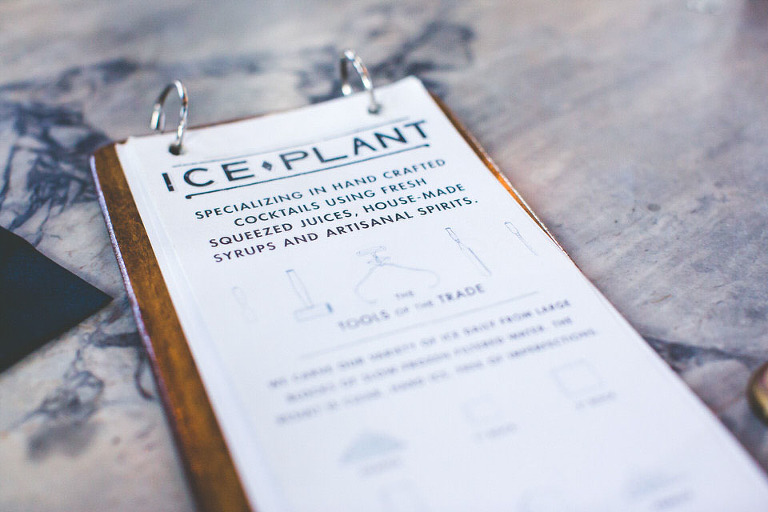 ICE♦PLANT
SPECIALIZING IN HAND CRAFTED
COCKTAILS USING FRESH
SQUEEZED JUICES, HOUSE-MADE
SYRUPS AND ARTISANAL SPIRITS.
THE
TOOLS OF THE TRADE
WE CARVE OUR VARIETY OF ICE DAILY FROM LARGE
BLOCKS OF SLOW FROZEN FILTERED WATER. THE